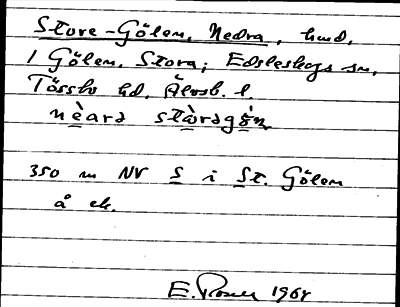 Store-Gölen, Nedra, hmd.
1 Gölen, Stora; Edsleskogs sn,
Tössbo hd, Älvsb. l.
nèara stàragön
350 m NV S i St. Gölen
å ek.
E. Rosell 1968